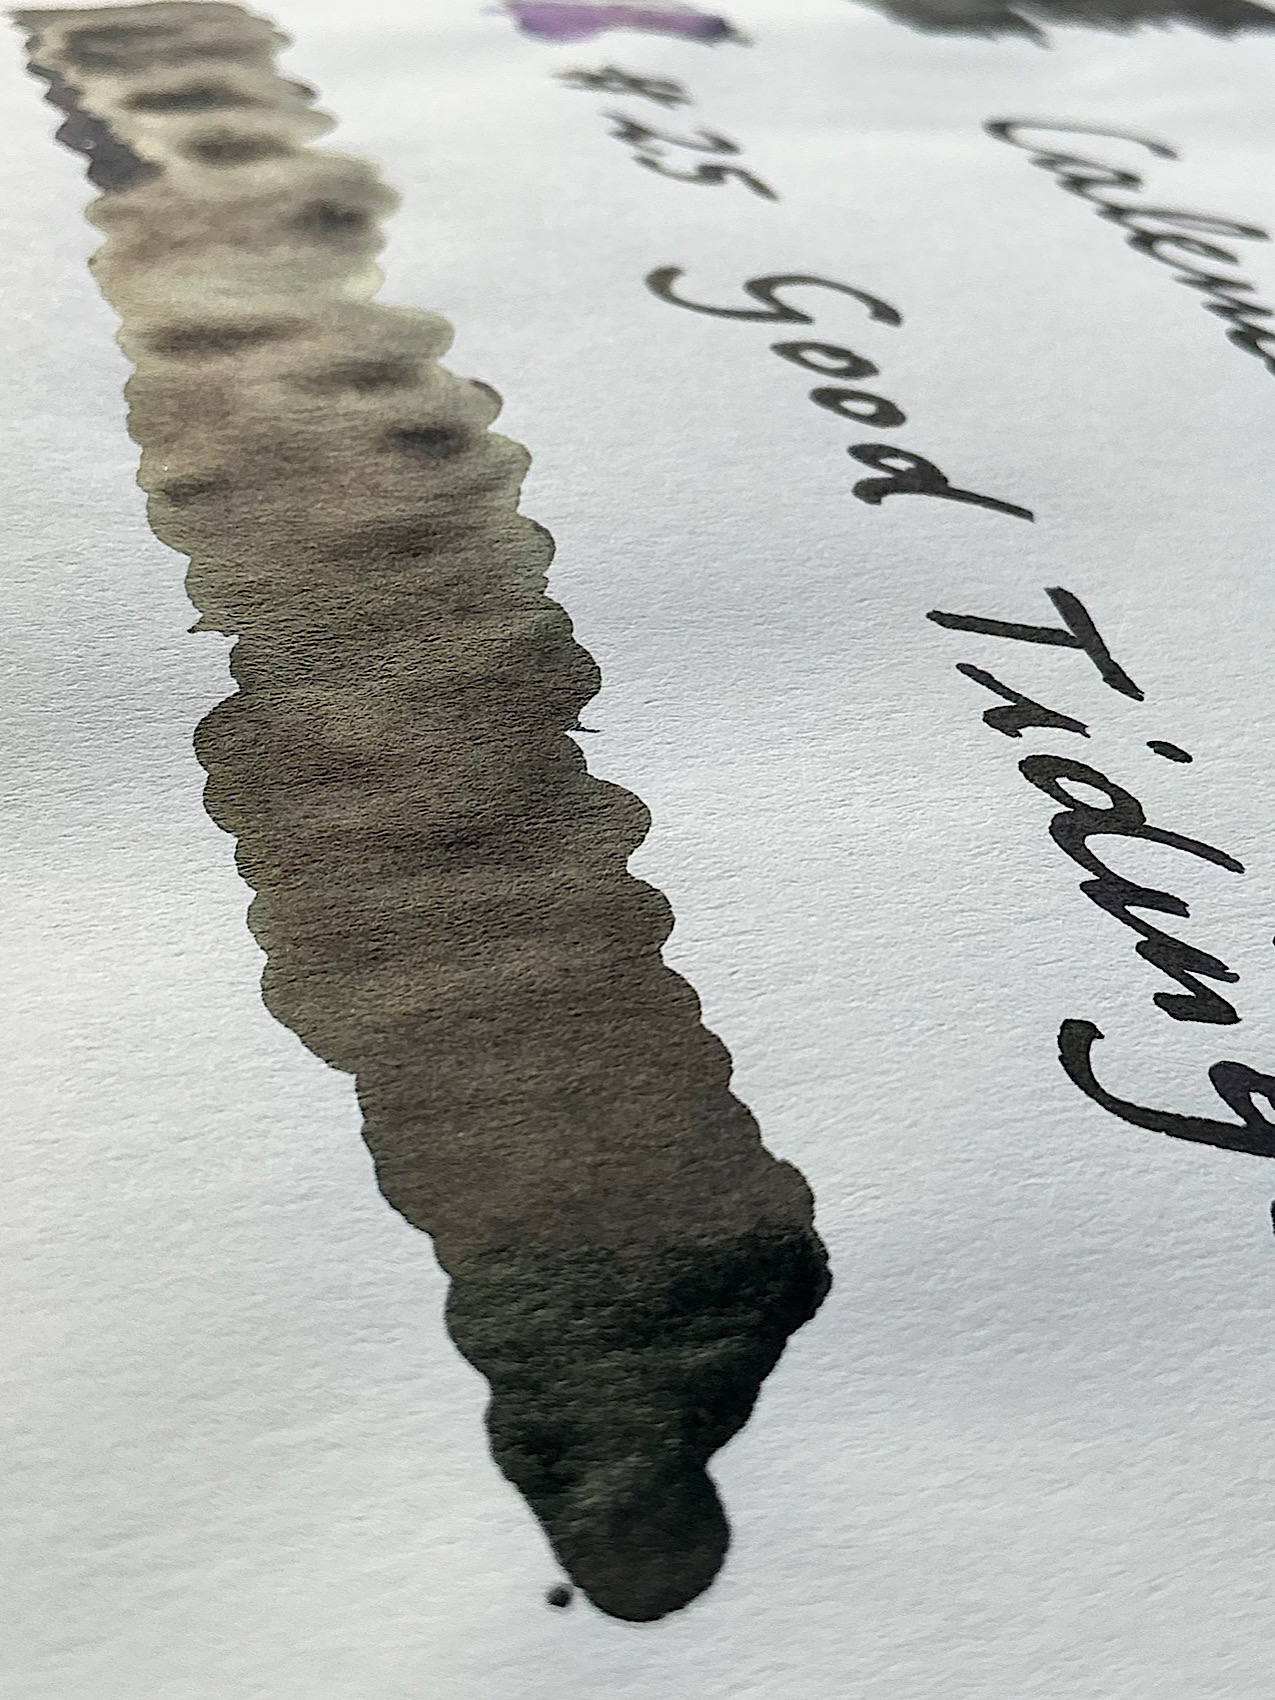 Calen
#25 Good Tiding